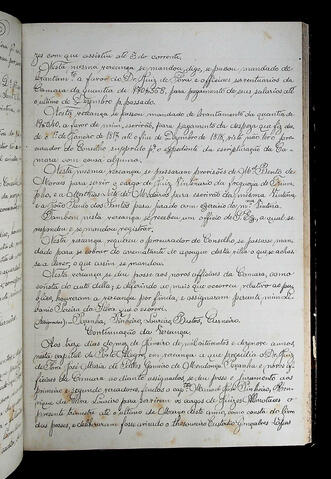 zes com que assistiu até 3 do corrente.
Nesta mesma vereança se mandou, digo, se passou mandado de
levantamto a favor do Dr. Juiz de Fóra e officiaes serventuarios da
Camara da quantia de para pagamento de seus salarios até
o ultimo de Dezembro passado.
Nesta vereança se passou mandado de levantamento da quantia de
a favor de mim, escrivão, para pagamento da despeza que fiz de
de 1º de Janeiro de 1817 até o fim de Dezembro de 1818, visto não ter o pro-
curador do Conselho supprido pª o expediente da escripturação da Ca-
mara com coisa alguma.
Nesta mesma vereança se passaram provisões de Mel Bento de
Moraes para servir o cargo de Juiz Vintenario da freguezia do Trium-
pho, e a Mathias de Medeiros para escrivão da mesma Vintena
e a João Paulo dos Santos para jurado com exercicio da mma Vintena.
Tambem nesta vereança se recebeu um officio de S. Ex., a qual se
respondeu e se mandou registrar.
Nesta vereança requereu o procurador do Conselho se passasse man-
dado para se cobrar do arrematante do açougue desta villa o que se achas-
se a dever, o que assim se mandou.
Nesta vereança se deu posse aos novos officiaes da Camara, como
consta do auto della; e deferindo ao mais que occorreu relativo ás par-
tes, houveram a vereança por finda, e assignaram perante mim, Ale-
bario Pereira da Silva que o escrevi.
(Assignados) Peçanha, Pinheiro, Loureiro, Bastos, Carneiro.
Continuação da Vereança.
Aos treze dias do mez de Janeiro de mil oitocentos e dezenove annos
nesta capital de Porto Alegre, em vereança a que presidiu o Dr. Juiz
de Fóra José Maria de Salles Gameiro de Mendonça Peçanha e novos of-
ficiaes da Camara ao diante assignados, se deu posse e juramento aos
primeiro e segundo vereadores, findos, o capm Manuel José Pinheiro,
José Loureiro para servirem os cargos de Juizes Almotaces o
presente bimestre até o ultimo de Março deste anno, como consta do livro
das posses, e declararam fosse servindo o thesoureiro Custodio Gonçalves Lopes